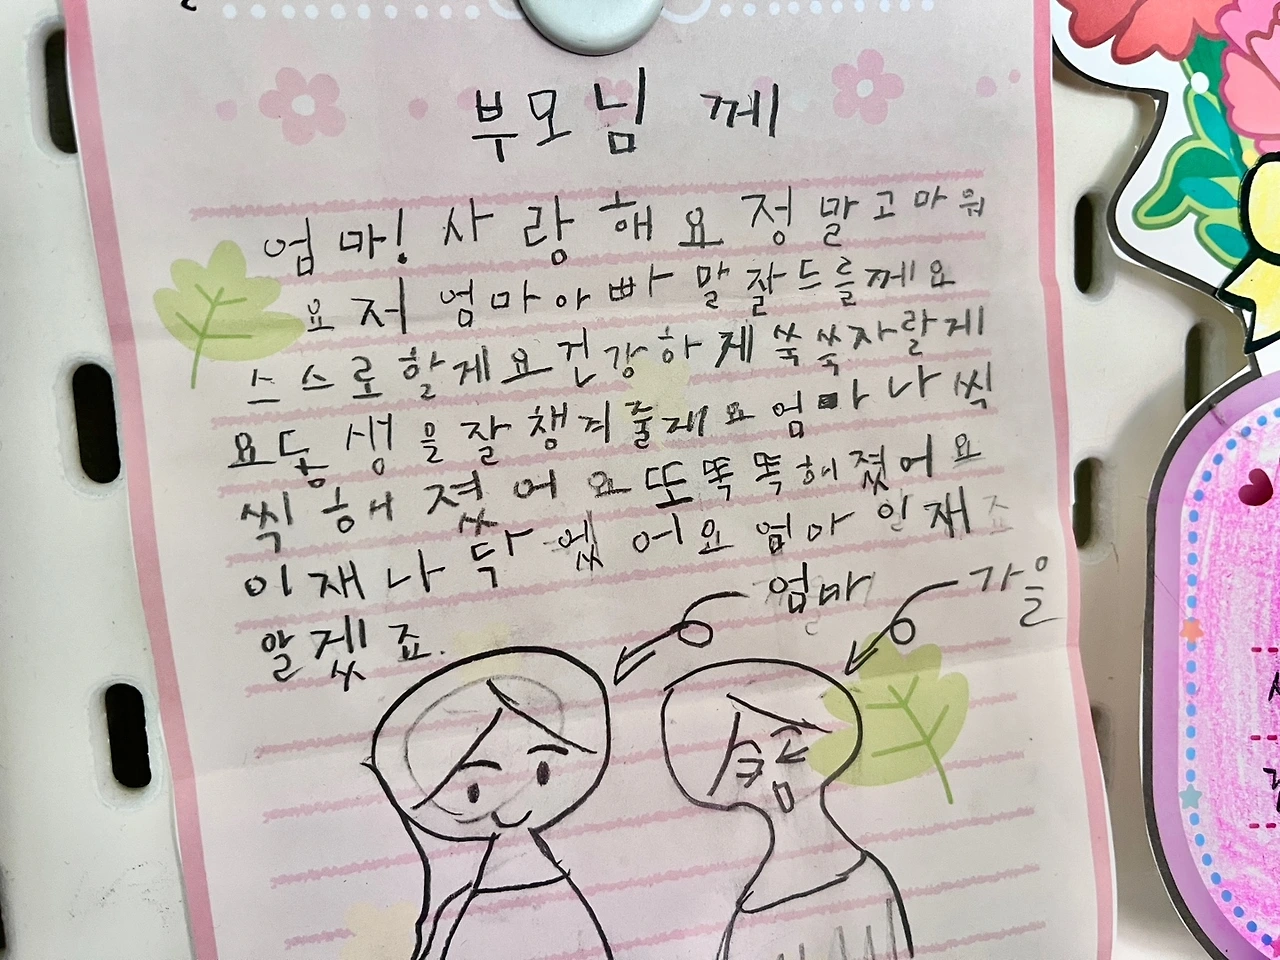 부모님 께
엄마! 사랑해요 정말고마워
요 저 엄마아빠 말잘드를께요
스스로할게요건강하제쑥쑥자랄게
요동생을잘챙겨줄게요엄마나씩
씩해졌어요또똑똑해졌어요
이재나닥엤어요엄마인재죠
알겠죠.
엄마
가을